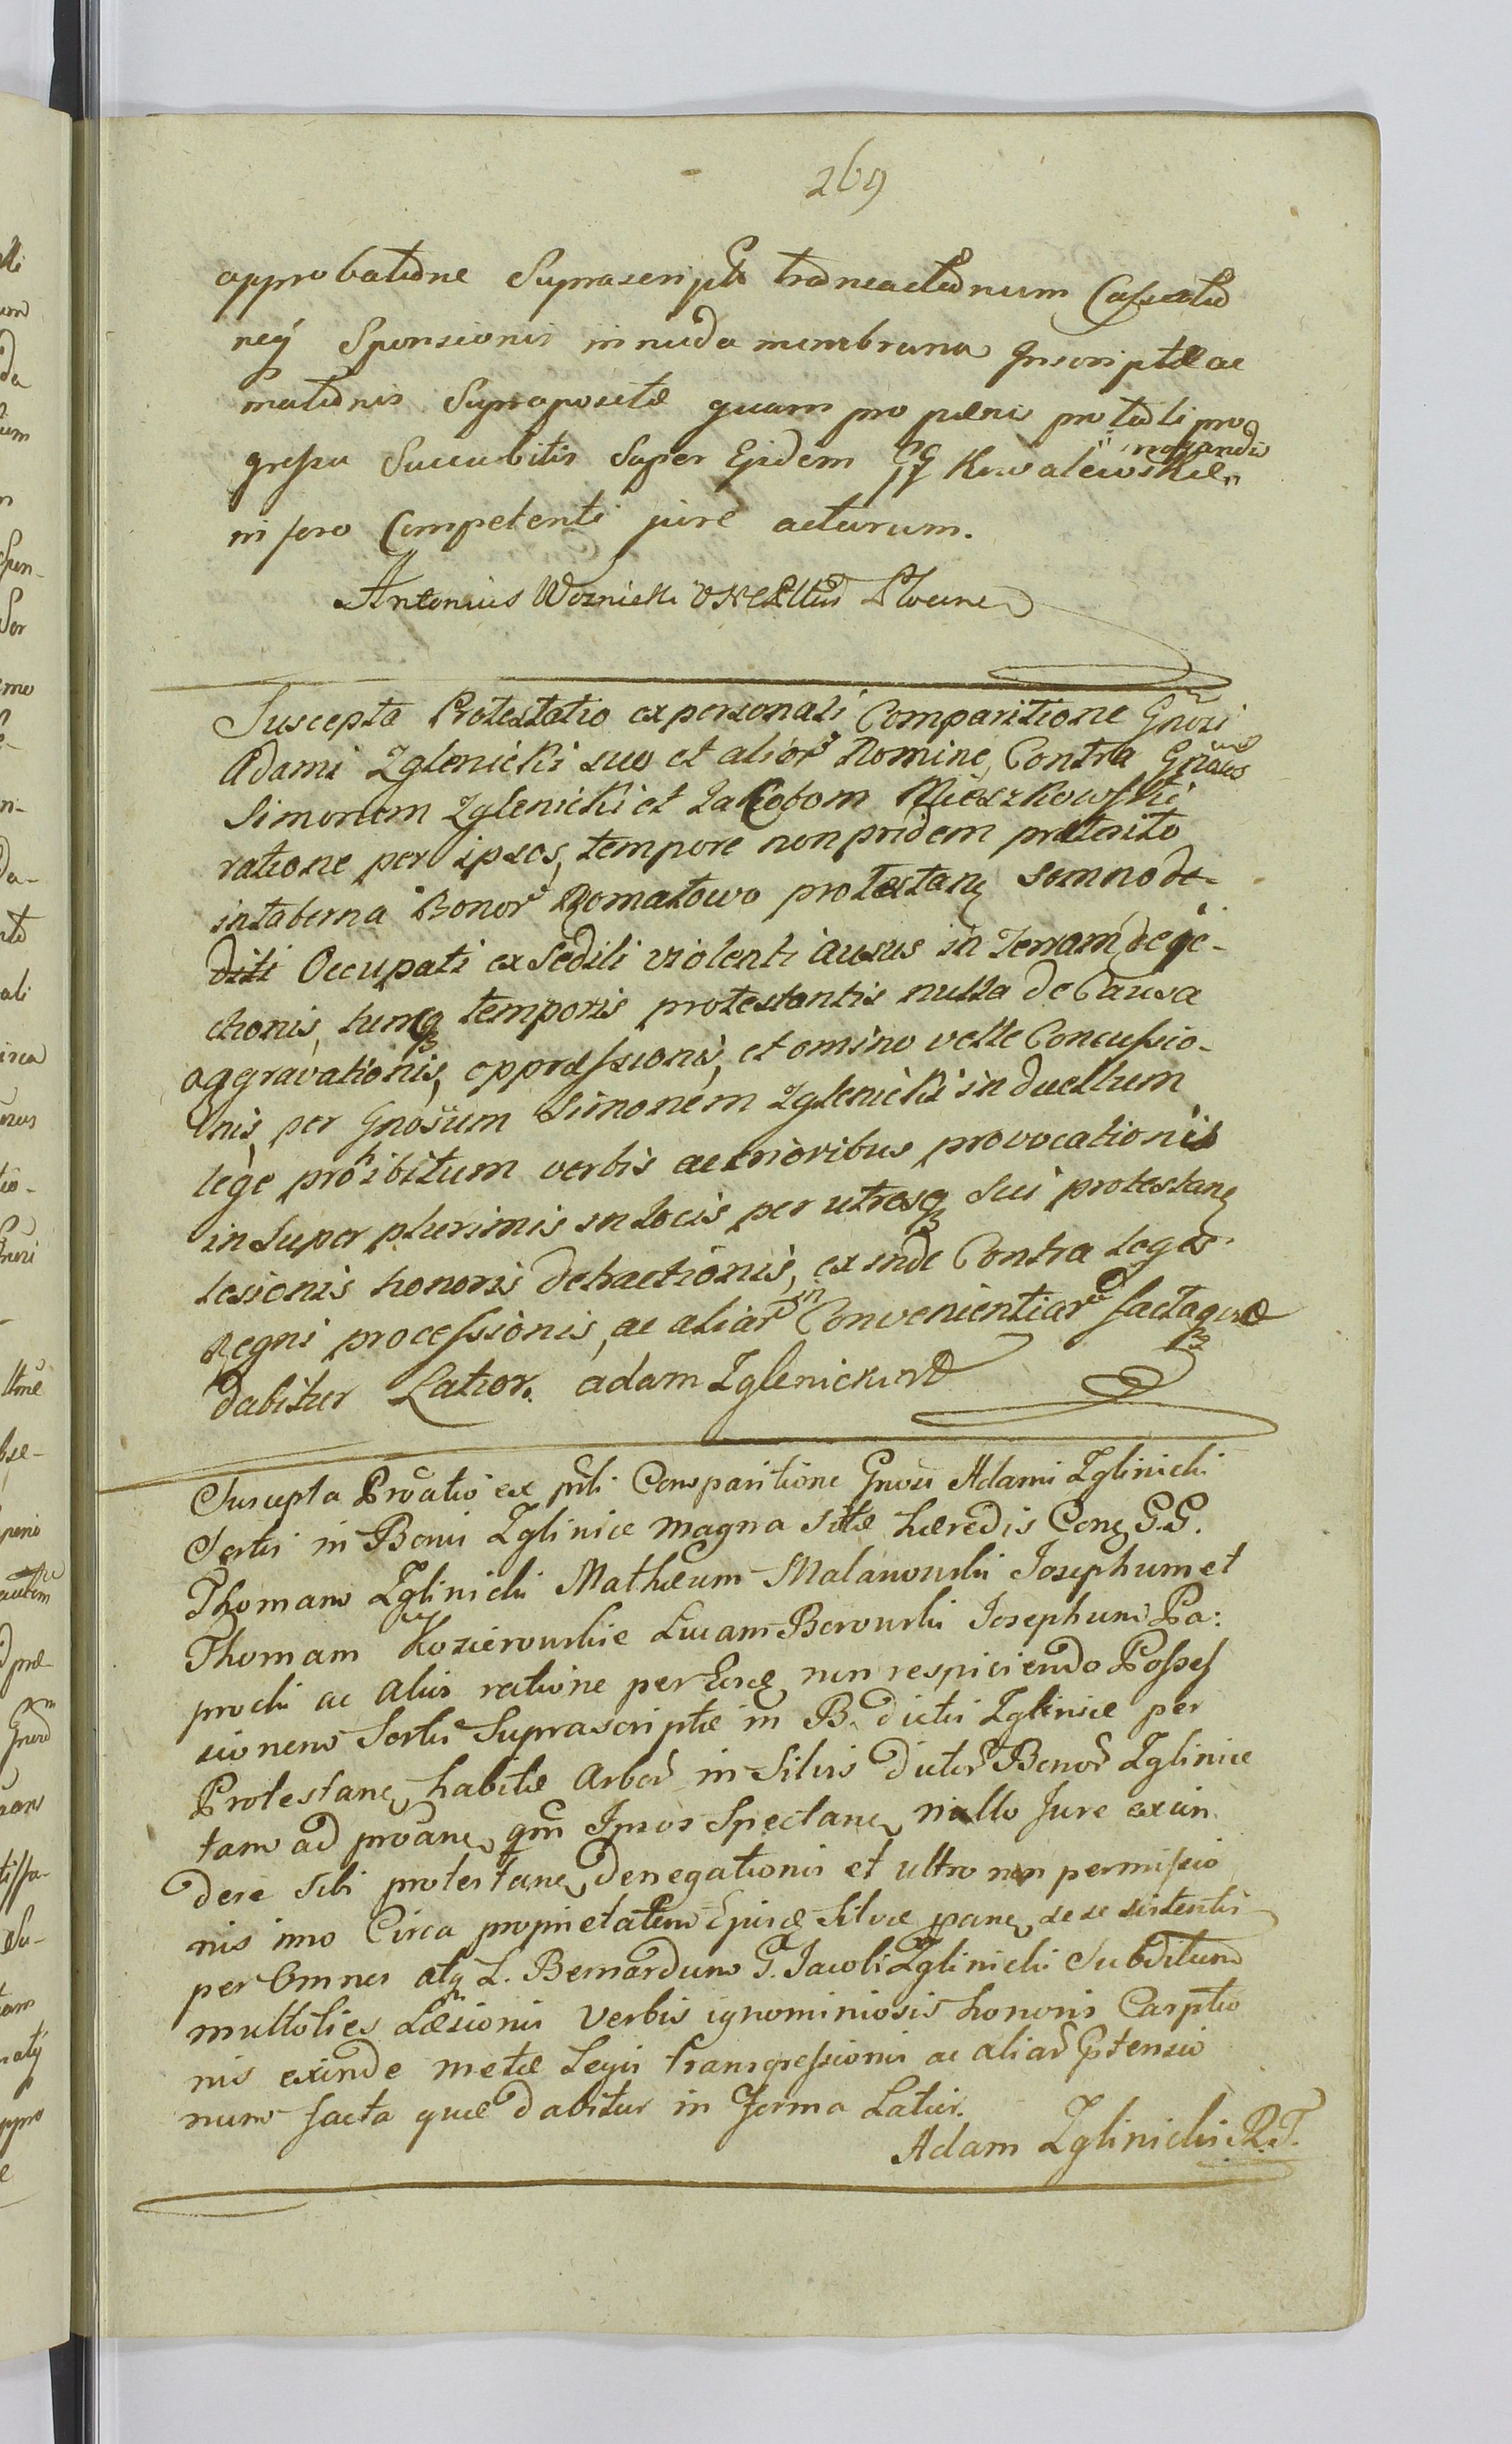 269
approbatione Suprascripte transactionum Cassatio
neq Sponsionis in nuda membrana Inscriptæ ac
mationis Supraposite quam pro pænis pro tali pro
gressu Succubitis Super Ejsdem GG Kowalewskie
nozandis
in foro Competenti jure acturum.
Antonius Woznicki
Suscepta Protestatio ex personali Comparitione Gnosi
Adami Zglenicki suo et alior Nomine, Contra Gnosos
Simonem Zglenicki et Jacobom Mieszkowski
ratione per ipsos, tempore non pridem præterito
in taberna Bonor Romatowo protestane somno de
diti Occupati ex Sedili violenti ausus in Terram deje-
ctionis, tumq temporis protestantis nulla de Causa
aggravationis, oppræssionis, et omino velle Concussio-
nis, per Gnosum Simonem Zglenicki in duellum
lege prohibitum verbis acrioribus provocationis
in super plurimis in locis per utrosq Sui protestane
lesionis honoris detractionis, ex inde Contra leges
Regni processionis, ac aliar in Convenientiar facta quæ
dabitur Latior. adam Zglenicki
Suscepta Proatio ex prli Comparitione Gnosi Adami Zglinicki
Sortis in Bonis Zglinice magna sitæ hæredis Cone G.G.
Thomam Zglinicki Mathæum Malanowski Josephum et
Thomam Kozierowskie Lucam Borowski Josephum Pa:
procki ac alios ratione per Eosq non respiciendo Posses
sionem Sortis Suprascriptæ in B. dictis Zglinice per
Protestane habitæ Arbor in Silvis dictor Bonor Zglinice
tam ad proane qm Ipsos Spectane nullo Jure excin
dere sibi protestane denegationis et ultro non permissio
nis imo Circa proprietatem Ejusq Silvæ pane se se sistentis
per Omnes atq L. Bernardum G. Jacobi Zglinicki Subditum
multoties Læsionis Verbis ignominiosis honoris Carptio
nis exinde metæ Legis transgressionis ac aliar Ptensio
num facta quæ dabitur in forma Latior.
Adam Zglinicki R.T.